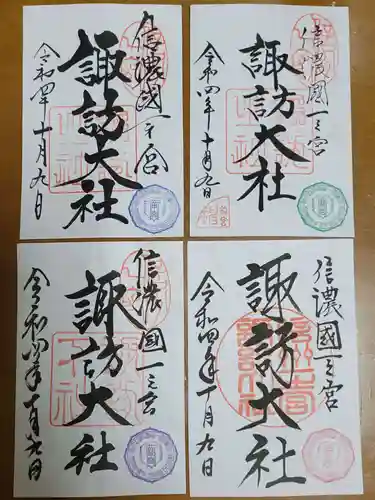 信濃國一之宮
諏訪大社
令和四年十月九日
信濃國一之宮
諏訪大社
令和四年十月九日
信濃國一之宮
諏訪大社
令和四年十月九日
信濃國一之宮
諏訪大社
令和四年十月九日